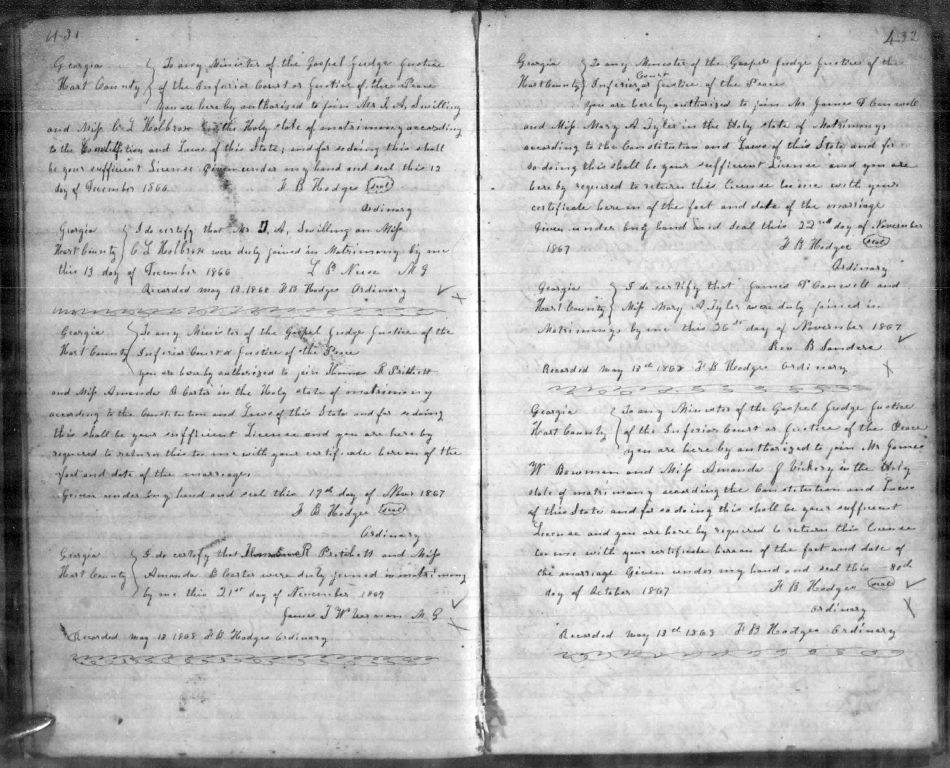 431
Georgia } To any Minister of the Gospel Judge Justice
Hart County } of the Inferior Court or Justice of the Peace
you are here by authorized to join Mr A. Swilling
and Miss C L Holbrow in the Holy state of matrimony according
to the Constitution and Laws of this State, and for so doing this shall
be your sufficient License Given under my hand and seal this 12
day of December 1866 F B Hodges seal
Ordinary
Georgia } I do certify that Mr A. Swilling an Miss
Hart County } C L Holbrow were duly joined in Matrimony by me
this 13 day of December 1866 L P M G
Recorded may 13 1868 F B Hodges Ordinary
Georgia } To any Minister of the Gospel Judge Justice of the
Hart County } Inferior Court or Justice of the Peace
you are hereby authorized to join Thomas R Pritchett
and Miss Amanda B Carter in the Holy state of matrimony
according to the Constitution and Laws of this State and for so doing
this shall be your sufficient License and you are here by
required to return this to me with your certificate hereon of the
fact and date of the marriage
Given under my hand and seal this 19th day of Nov 1867
F B Hodges seal
Ordinary
Georgia } I do certify that R Pritchett and Miss
Hart County } Amanda B Carter were duly joined in matrimony
by me this 21st day of November 1867
James T W M G
Recorded may 13 1868 F B Hodges Ordinary
432
Georgia } To any Minister of the Gospel Judge Justice of the
Hart County } Inferior Court or Justice of the Peace
you are hereby authorized to join Mr James
and Miss Mary A Tyler in the Holy state of Matrimony
according to the Constitution and Laws of this State and for
so doing this shall be your sufficient License and you are
here by required to return this License to me with your
certificate here on of the fact and date of the marriage
Given under my hand and seal this 22nd day of November
1867 F B Hodges seal
Ordinary
Georgia } I do certify that James and
Hart County } Miss Mary A Tyler were duly joined in
Matrimony by me this day of November 1867
Rev B Sanders
Recorded may 13th 1868 F B Hodges Ordinary
Georgia } To any Minister of the Gospel Judge Justice
Hart County } of the Inferior Court or Justice of the Peace
you are here by authorized to join Mr James
W Bowman and Miss Amanda J Vickory in the Holy
state of matrimony according the Constitution and Laws
of this State and for so doing this shall be your sufficient
License and you are here by required to return this License
to me with your certificate hereon of the fact and date of
the marriage Given under my hand and seal this
day of October 1867 F B Hodges seal
Ordinary
Recorded may 13th 1868 F B Hodges Ordinary